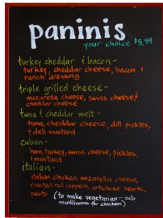 paninis
your choice $5.99
turkey cheddar & bacon -
turkey, cheddar cheese, bacon &
ranch dressing
triple grilled cheese -
mozarella cheese, swiss cheese &
cheddar cheese
tuna & cheddar melt -
tuna, cheddar cheese, dill pickles,
& deli mustard
cuban -
ham, turkey, swiss cheese, pickles,
& mustard
italian -
italian chicken, mozarella cheese,
roasted red peppers, artichoke hearts,
pesto
(to make vegetarian - sub
mushrooms for chicken)